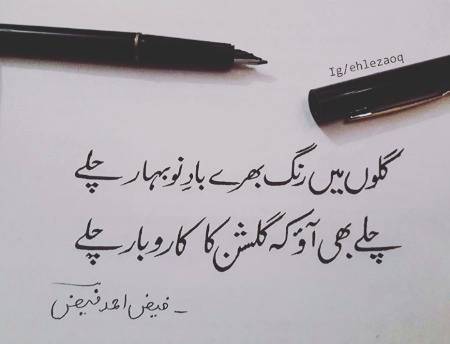 Ig/ehlezaoq
گلوں میں رنگ بھرے بادِ نو بہار چلے
چلے بھی آؤ کہ گلشن کا کاروبار چلے
- فیض احمد فیض